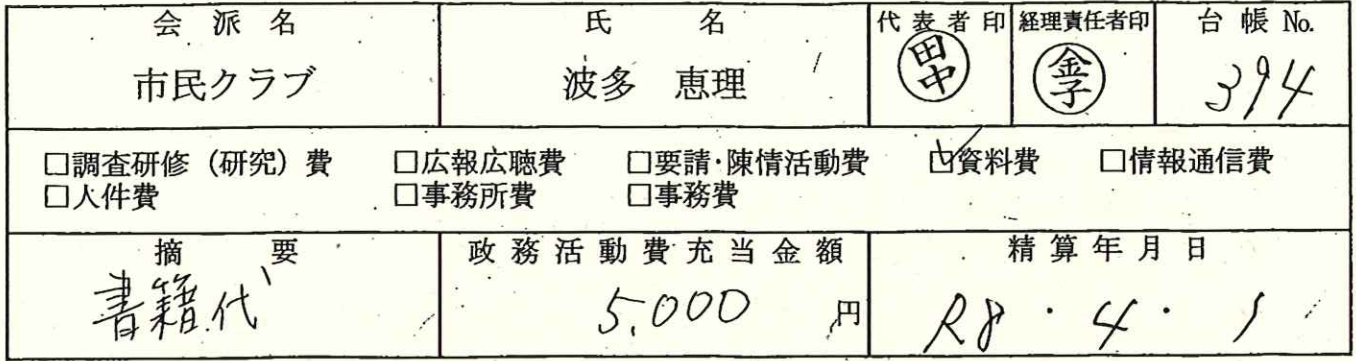 会派名 氏名 代表者印 経理責任者印 台帳No.
市民クラブ 波多 恵理 田中 金子 394
□調査研修（研究）費 □広報広聴費 □要請・陳情活動費 ☑資料費 □情報通信費
□人件費 □事務所費 □事務費
摘要 政務活動費充当金額 精算年月日
書籍代 5,000円 R8・4・1